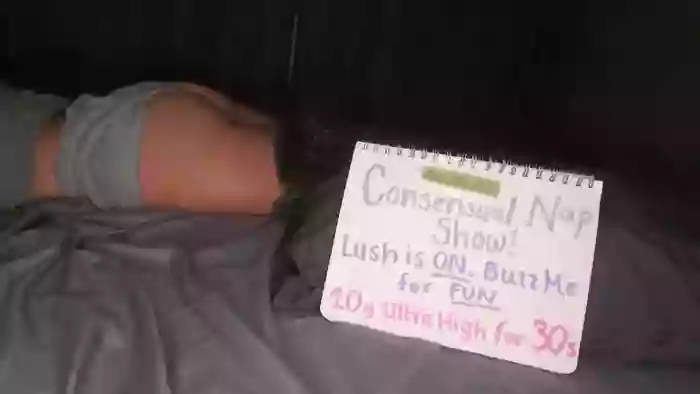 Consensual Nap
Show!
Lush is ON. Buzz Me
for FUN
20g Ultra High for 30s